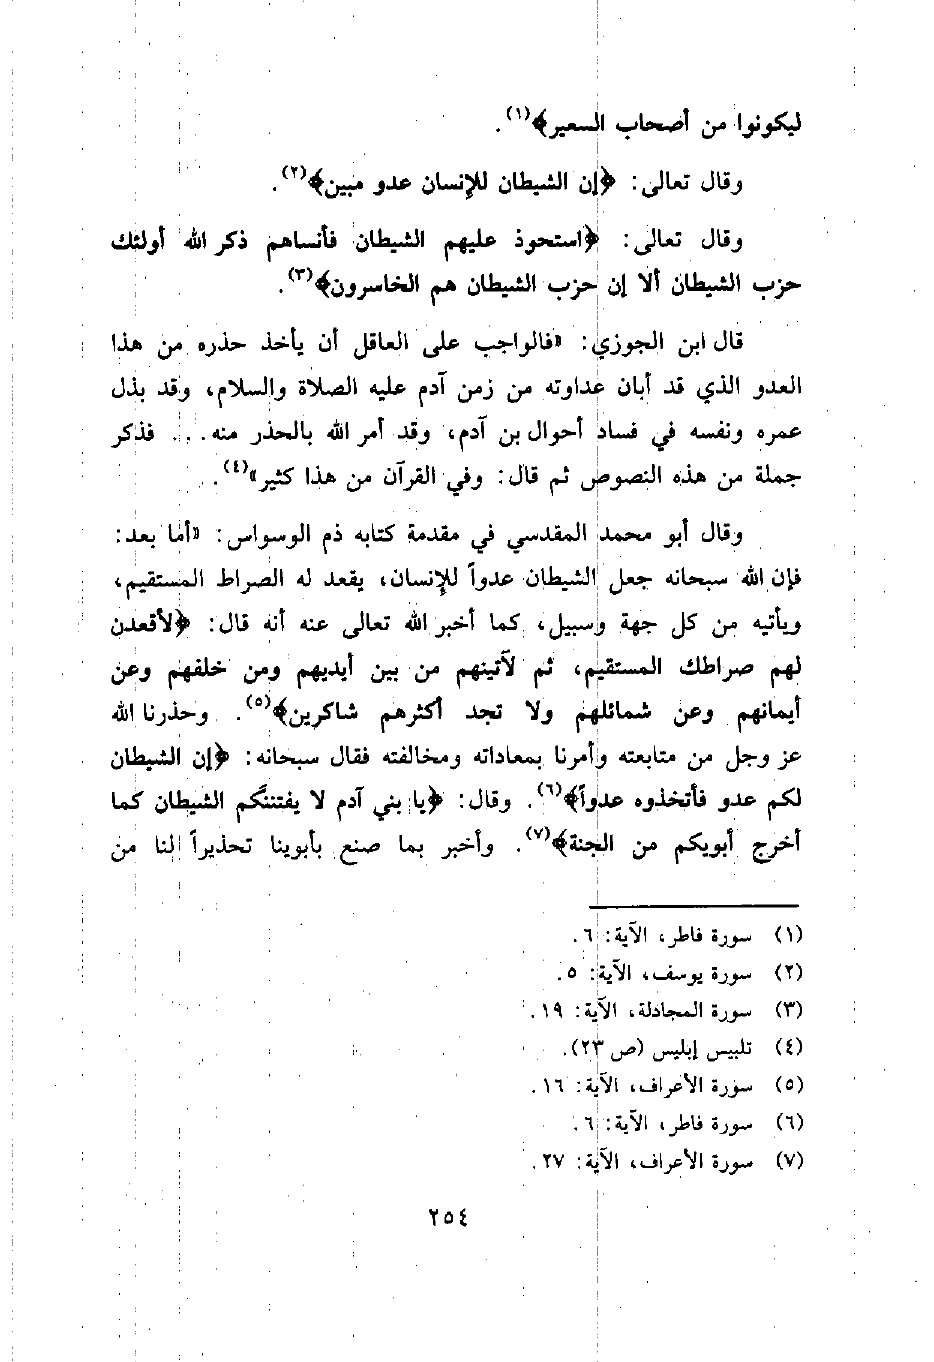 ليكونوا من أصحاب السعير﴾(١).
وقال تعالى: ﴿إن الشيطان للإنسان عدو مبين﴾(٢).
وقال تعالى: ﴿استحوذ عليهم الشيطان فأنساهم ذكر الله أولئك
حزب الشيطان ألا إن حزب الشيطان هم الخاسرون﴾(٣).
قال ابن الجوزي: «فالواجب على العاقل أن يأخذ حذره من هذا
العدو الذي قد أبان عداوته من زمن آدم عليه الصلاة والسلام، وقد بذل
عمره ونفسه في فساد أحوال بن آدم، وقد أمر الله بالحذر منه... فذكر
جملة من هذه النصوص ثم قال: وفي القرآن من هذا كثير»(٤).
وقال أبو محمد المقدسي في مقدمة كتابه ذم الوسواس: «أما بعد:
فإن الله سبحانه جعل الشيطان عدواً للإنسان، يقعد له الصراط المستقيم،
ويأتيه من كل جهة وسبيل، كما أخبر الله تعالى عنه أنه قال: ﴿لأقعدن
لهم صراطك المستقيم، ثم لآتينهم من بين أيديهم ومن خلفهم وعن
أيمانهم وعن شمائلهم ولا تجد أكثرهم شاكرين﴾(٥). وحذرنا الله
عز وجل من متابعته وأمرنا بمعاداته ومخالفته فقال سبحانه: ﴿إن الشيطان
لكم عدو فأتخذوه عدواً﴾(٦). وقال: ﴿يا بني آدم لا يفتننكم الشيطان كما
أخرج أبويكم من الجنة﴾(٧). وأخبر بما صنع بأبوينا تحذيراً لنا من
(١) سورة فاطر، الآية: ٦.
(٢) سورة يوسف، الآية: ٥.
(٣) سورة المجادلة، الآية: ١٩.
(٤) تلبيس إبليس (ص ٢٣).
(٥) سورة الأعراف، الآية: ١٦.
(٦) سورة فاطر، الآية: ٦.
(٧) سورة الأعراف، الآية: ٢٧.
٢٥٤